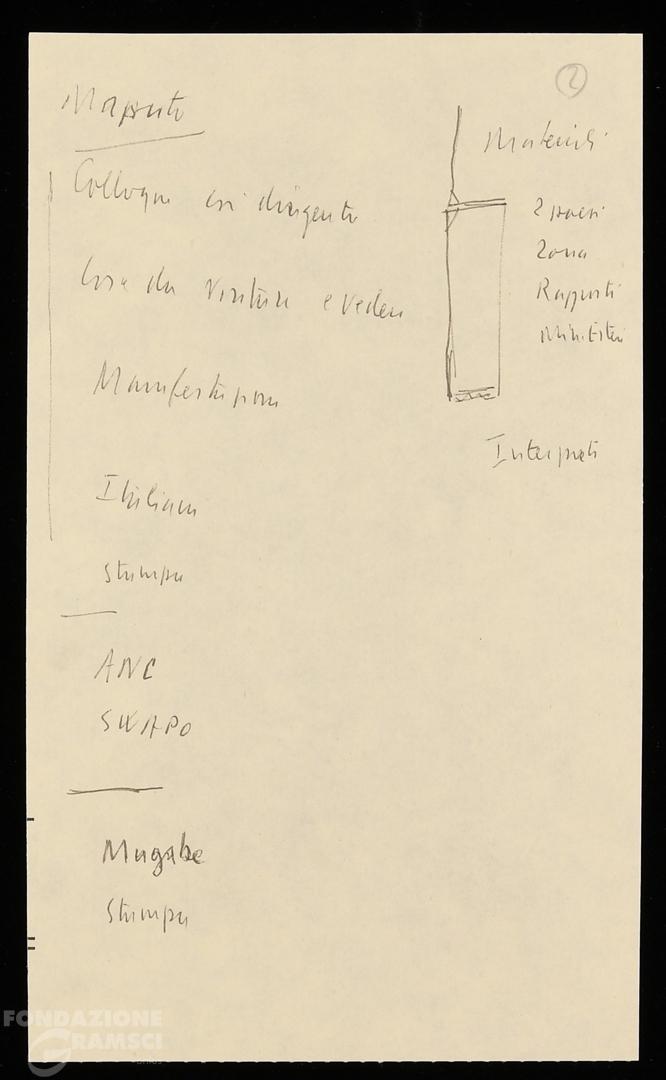 2
Maputo
Colloqui coi dirigenti
Cose da visitare e vedere
Manifestazioni
Italiani
Stampa
ANC
SWAPO
Mugabe
Stampa
Materiali
2 paesi
Zona
Rapporti
Ministeri
Interpreti
FONDAZIONE
GRAMSCI